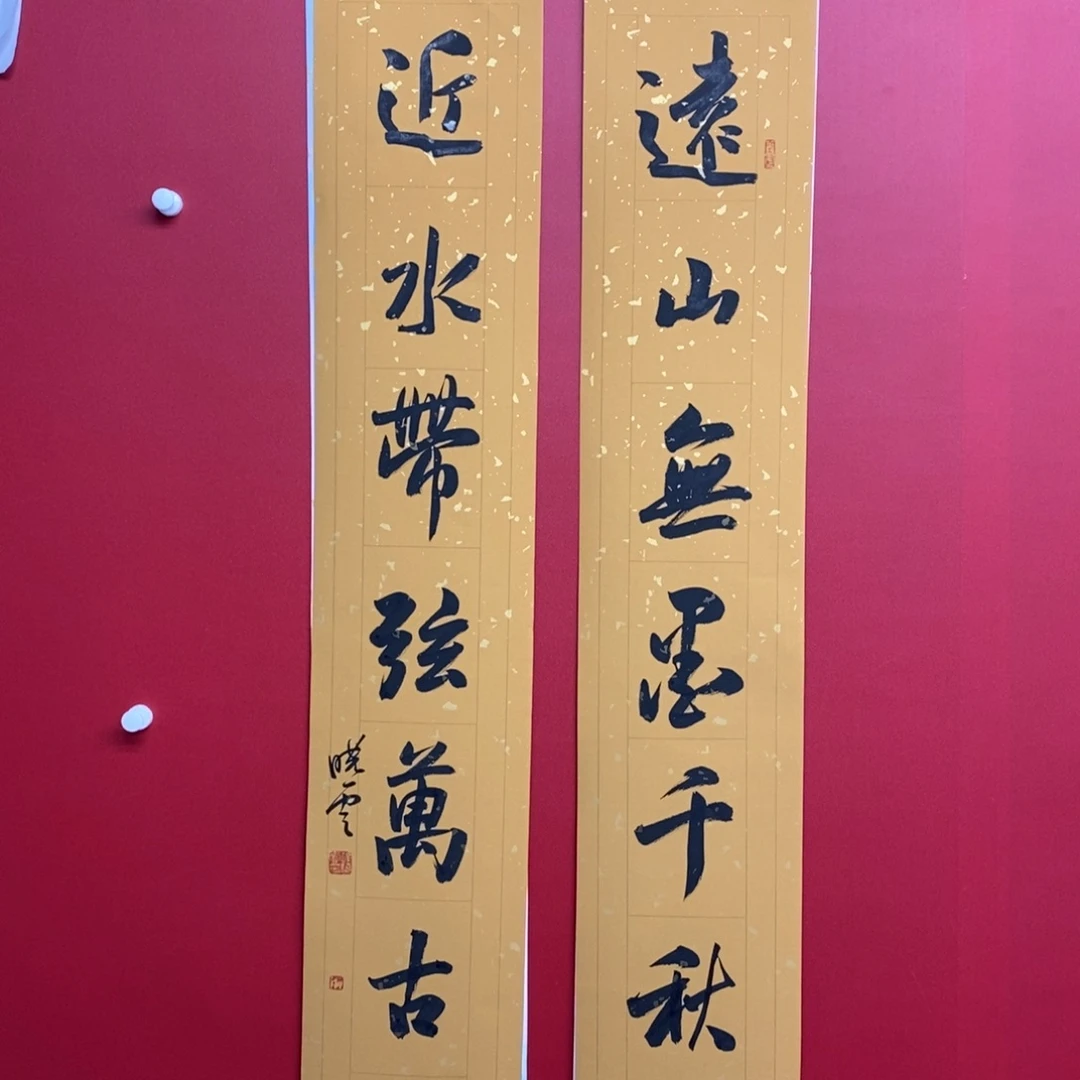 遠山無墨千秋
近水帶弦萬古
曉雲